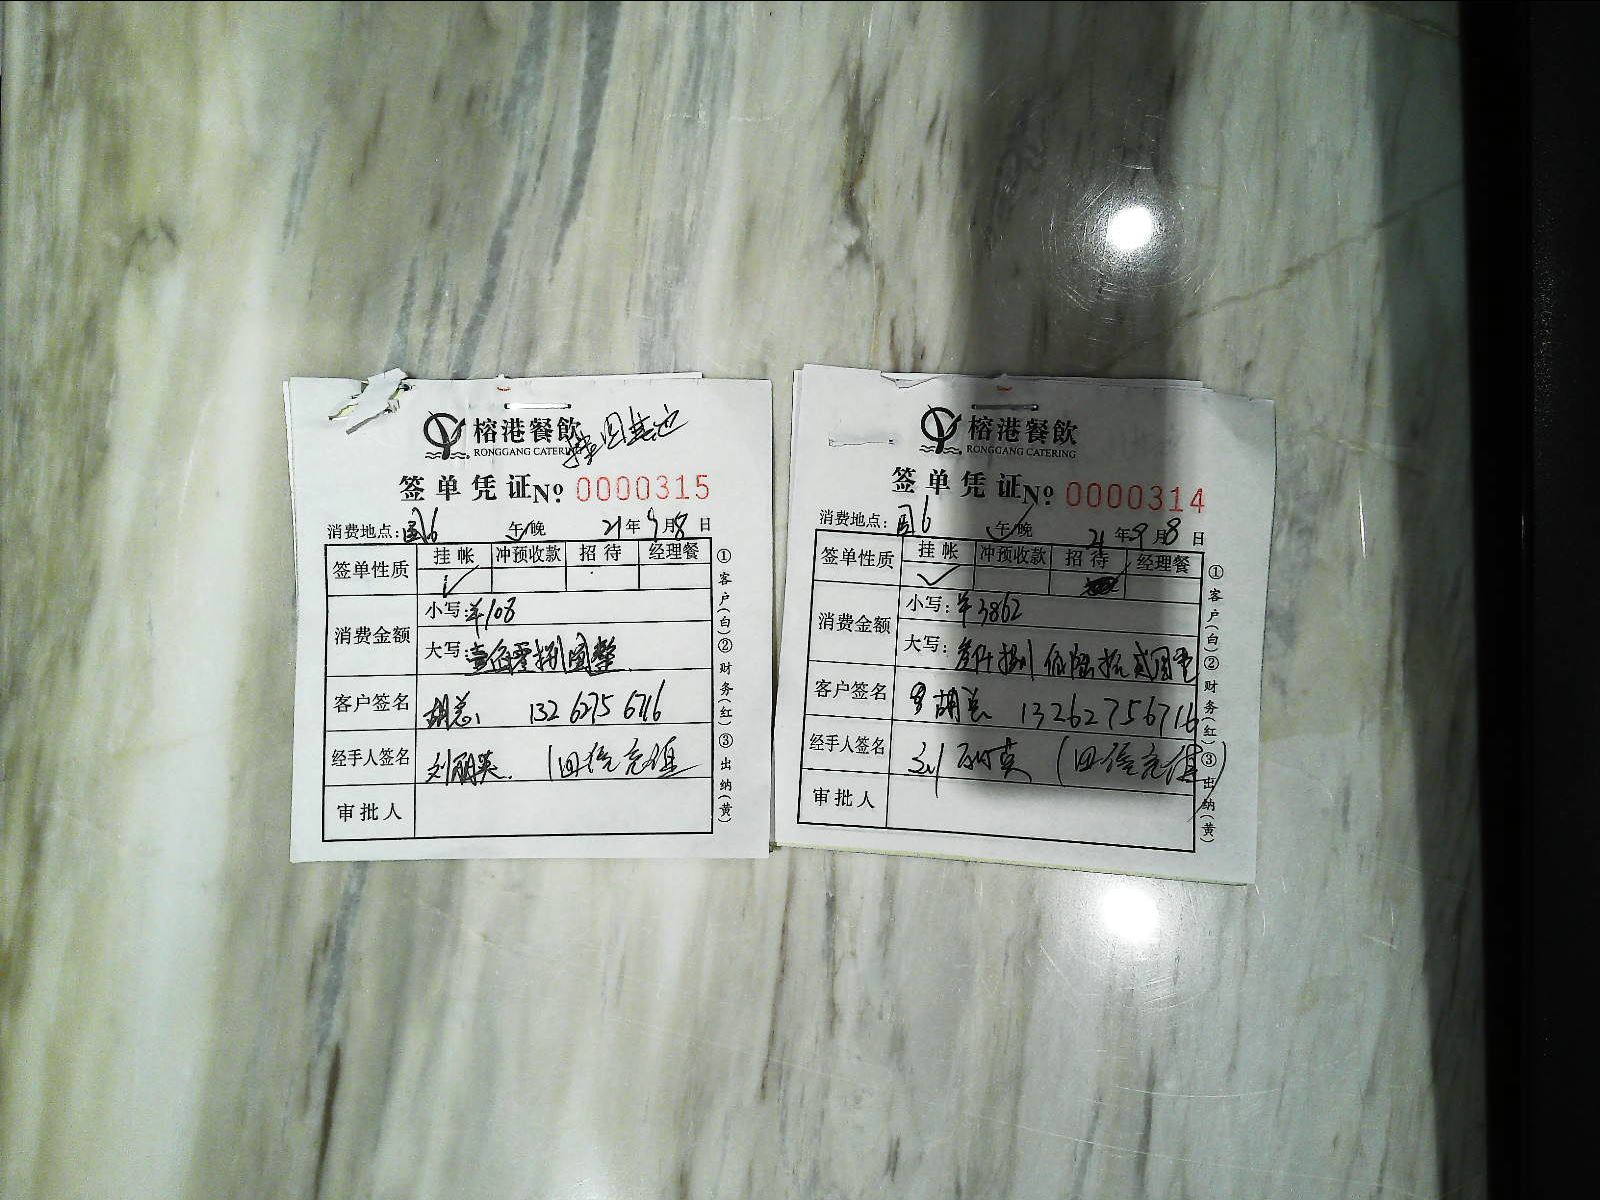 榕港餐飲
RONGGANG CATERING
签单凭证 No. 0000315
消费地点：国6 午/晚 21年9月8日
签单性质 挂帐 冲预收款 招待 经理餐
✓
消费金额 小写：¥108
大写：壹佰零捌圆整
客户签名 胡总 132 6275 6716
经手人签名 刘丽英 (四倍充值
审批人
①客户(白)②财务(红)③出纳(黄)
榕港餐飲
RONGGANG CATERING
签单凭证 No. 0000314
消费地点：国6 午/晚 21年9月8日
签单性质 挂帐 冲预收款 招待 经理餐
✓
消费金额 小写：¥3862
大写：叁仟捌佰陆拾贰圆整
客户签名 胡总 13262756716
经手人签名 刘丽英 (四倍充值)
审批人
①客户(白)②财务(红)③出纳(黄)